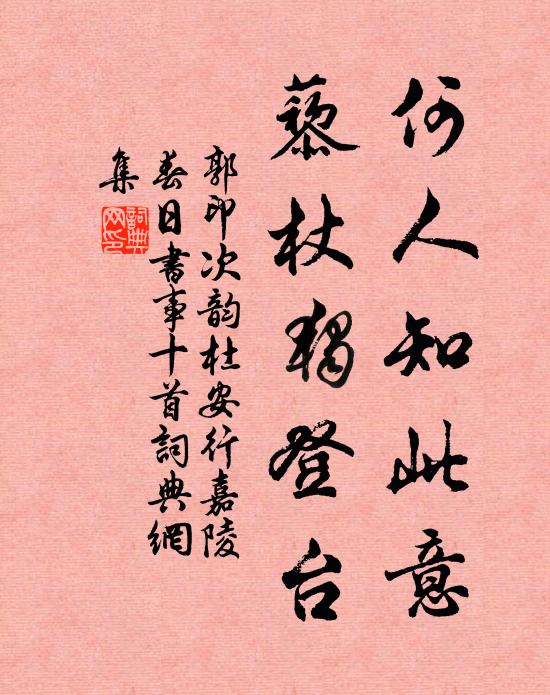 何人知此意
藜杖独登台
郭印次韵杜安行嘉陵
春日書事十首詞典網
集
詞典
网印